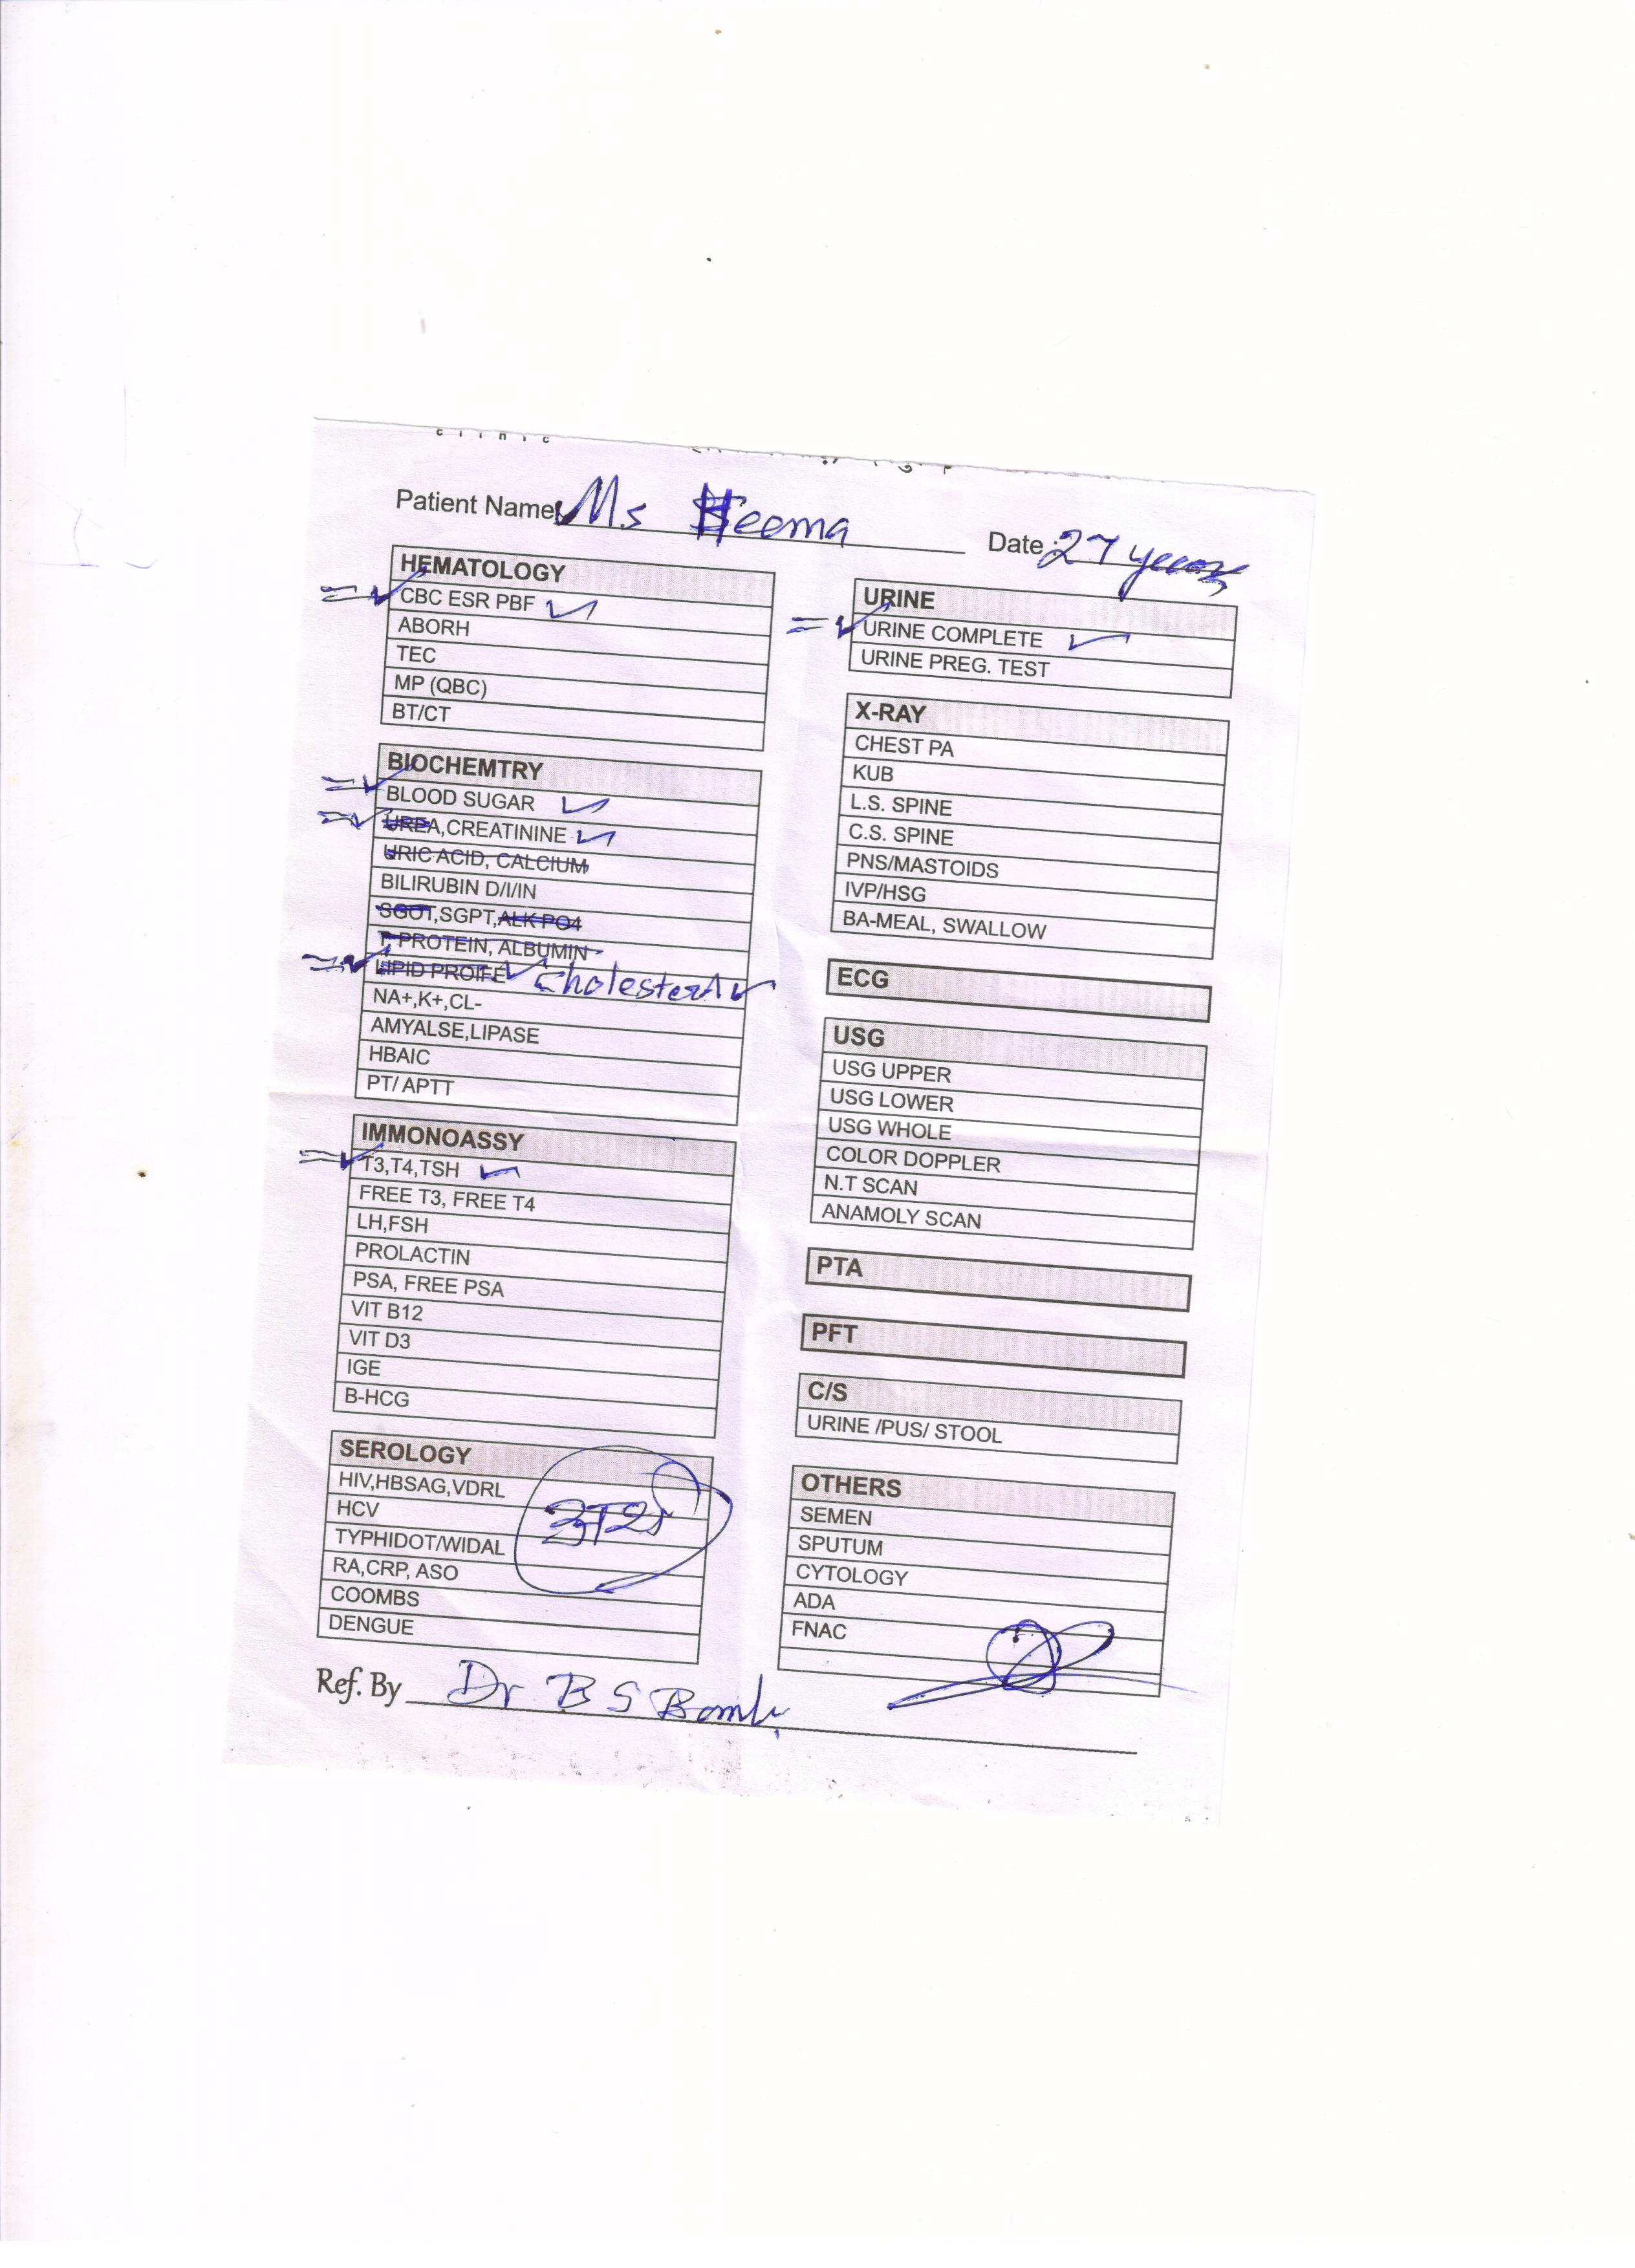 clinic
Patient Name Ms Heema
Date 27 years
HEMATOLOGY
CBC ESR PBF
ABORH
TEC
MP (QBC)
BT/CT
BIOCHEMTRY
BLOOD SUGAR
UREA,CREATININE
URIC ACID, CALCIUM
BILIRUBIN D/I/IN
SGOT,SGPT,ALK PO4
T. PROTEIN, ALBUMIN
LIPID PROIFE Cholesterol
NA+,K+,CL-
AMYALSE,LIPASE
HBAIC
PT/ APTT
IMMONOASSY
T3,T4,TSH
FREE T3, FREE T4
LH,FSH
PROLACTIN
PSA, FREE PSA
VIT B12
VIT D3
IGE
B-HCG
SEROLOGY
HIV,HBSAG,VDRL
HCV
TYPHIDOT/WIDAL
RA,CRP, ASO
COOMBS
DENGUE
URINE
URINE COMPLETE
URINE PREG. TEST
X-RAY
CHEST PA
KUB
L.S. SPINE
C.S. SPINE
PNS/MASTOIDS
IVP/HSG
BA-MEAL, SWALLOW
ECG
USG
USG UPPER
USG LOWER
USG WHOLE
COLOR DOPPLER
N.T SCAN
ANAMOLY SCAN
PTA
PFT
C/S
URINE /PUS/ STOOL
OTHERS
SEMEN
SPUTUM
CYTOLOGY
ADA
FNAC
Ref. By Dr B S Bomb